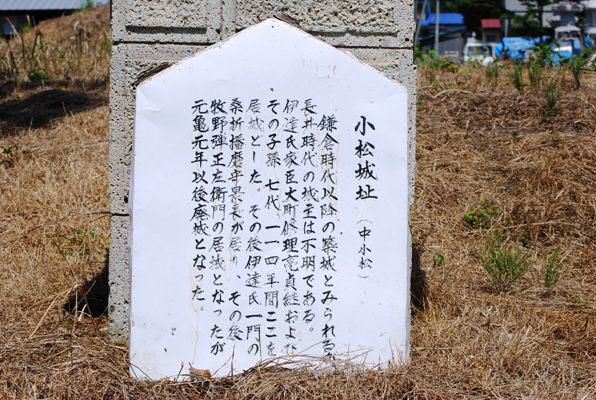 小松城址（中小松）
鎌倉時代以降の築城とみられるが
長井時代の城主は不明である。
伊達氏家臣大町修理亮貞継および
その子孫七代、一一四年間ここを
居城とした。その後伊達氏一門の
桑折播磨守景長が居り、その後
牧野弾正左衛門の居城となったが
元亀元年以後廃城となった。